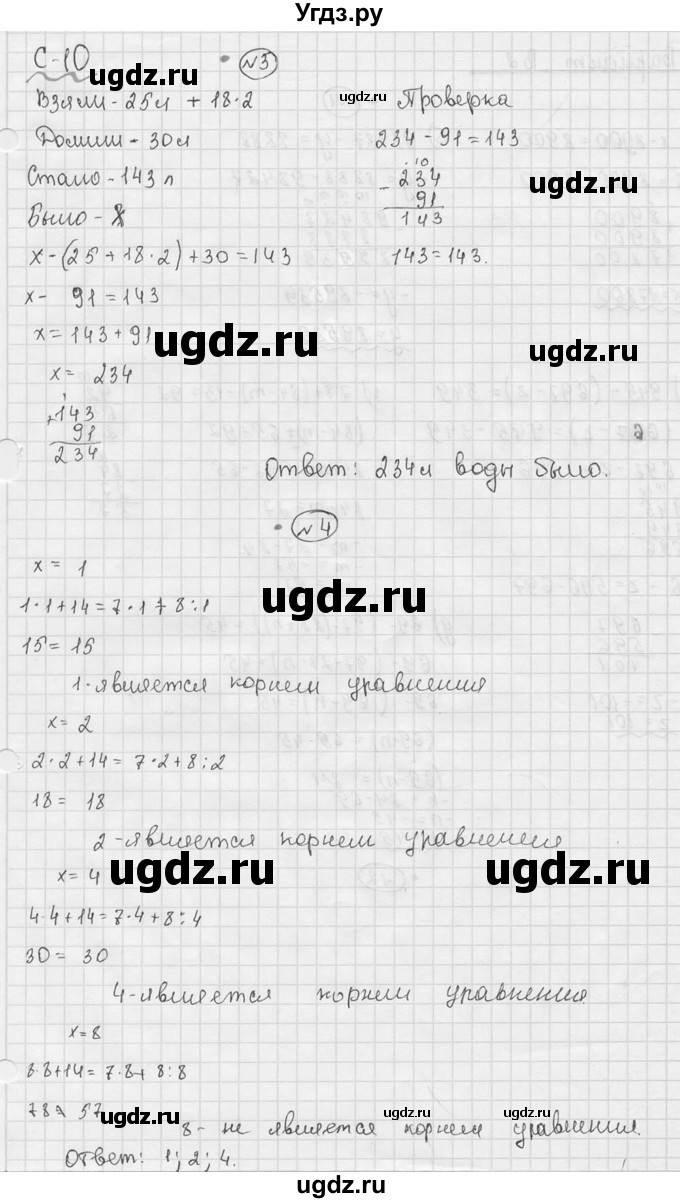 Угдз.ру
С-10
№3
Взяли - 25л + 18·2
Долили - 30л
Стало - 143 л
Было - x
x-(25+18·2)+30=143
x- 91=143
x=143+91
x= 234
+143
91
234
Проверка
234-91=143
10
-234
91
143
143=143.
Ответ: 234л воды было.
№4
x= 1
1·1+14=7·1+8:1
15=15
1-является корнем уравнения
x= 2
2·2+14= 7·2+8:2
18= 18
2-является корнем уравнения
x= 4
4·4+14=7·4+8:4
30= 30
4-является корнем уравнения
x=8
8·8+14=7·8+ 8:8
78≠ 57
8- не является корнем уравнения.
Ответ: 1; 2; 4.
ugdz.ru
ugdz.ru
ugdz.ru
ugdz.ru
ugdz.ru
ugdz.ru
ugdz.ru
ugdz.ru
ugdz.ru
ugdz.ru
ugdz.ru
ugdz.ru
ugdz.ru